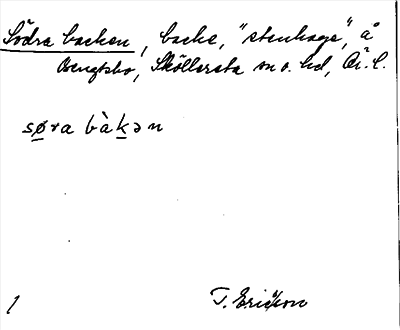 Södra backen, backe, "stenhage", å
Bengtsbo, Sköllersta sn o. hd, Ör. l.
sø̱ra bàḵən
1 T. Ericson